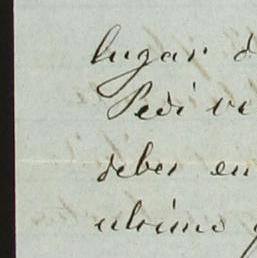 lugar d
Pedi ve
deber en
ultimo q